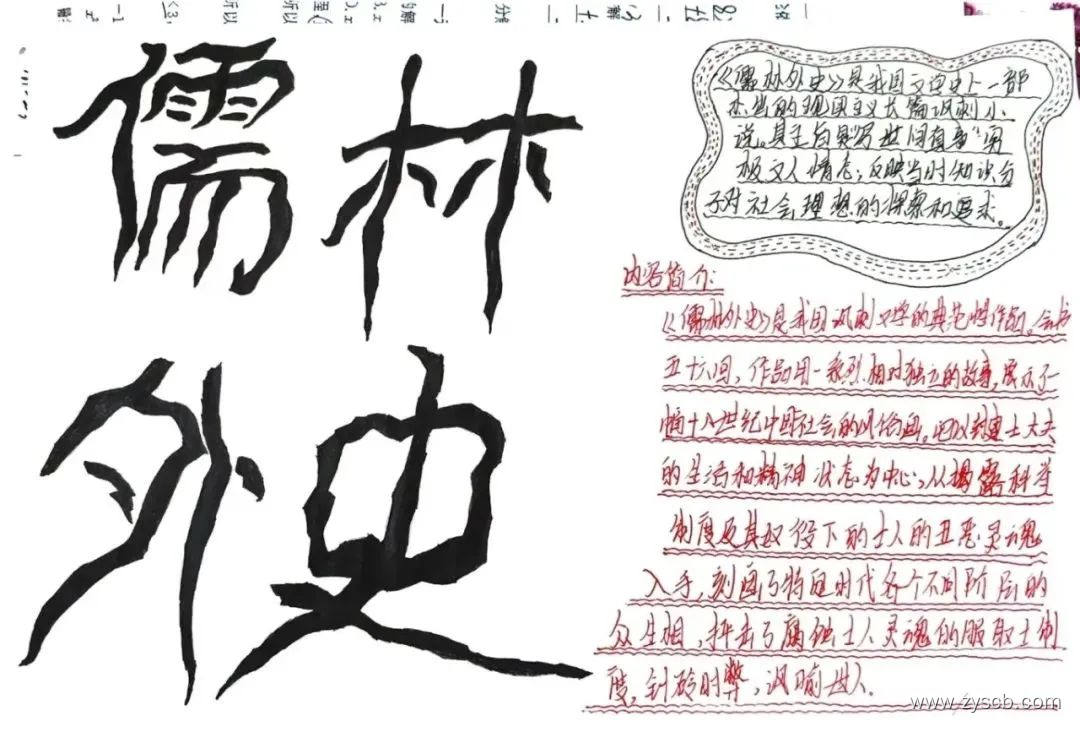 儒林
外史
《儒林外史》是我国文学史上一部
杰出的现实主义长篇讽刺小
说。其主旨是"写世间真事"穷
极文人情态；反映当时知识分
子对社会理想的探索和追求。
内容简介：
《儒林外史》是我国讽刺文学的典范性作品，全书
五十六回，作品用一系列相对独立的故事，展示了一
幅十八世纪中国社会的风俗画，它以封建士大夫
的生活和精神状态为中心，从揭露科举
制度及其奴役下的士人的丑恶灵魂
入手，刻画了特定时代各个不同阶层的
众生相，抨击了腐蚀士人灵魂的服取士制
度，针砭时弊，讽喻世人。
www.zyscb.com